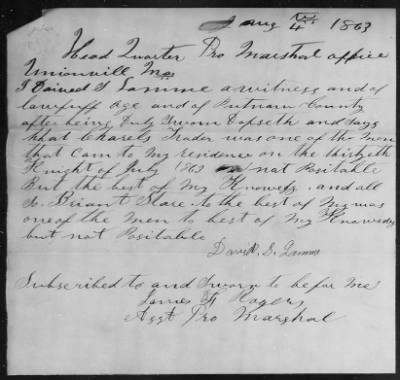 Aug 4 1863
Head Quarter Pro Marshal office
Unionvill Mo
I David S Lamme a witness and of
lawfull age and of Putnam County
after being Duly Sworn Depseth and says
that Charels Trader was one of the Men
that Cam to My residence on the thirtieth
Knight of July 1863 not Positable
But the best of My Knowefg. and all
So Briant Slare to the best of My was
one of the Men to best of My Knowedg
but not Positable
David. S. Lamme
Subscribed to and Sworn to be for Me
James F Rogers
Asst Pro Marshal